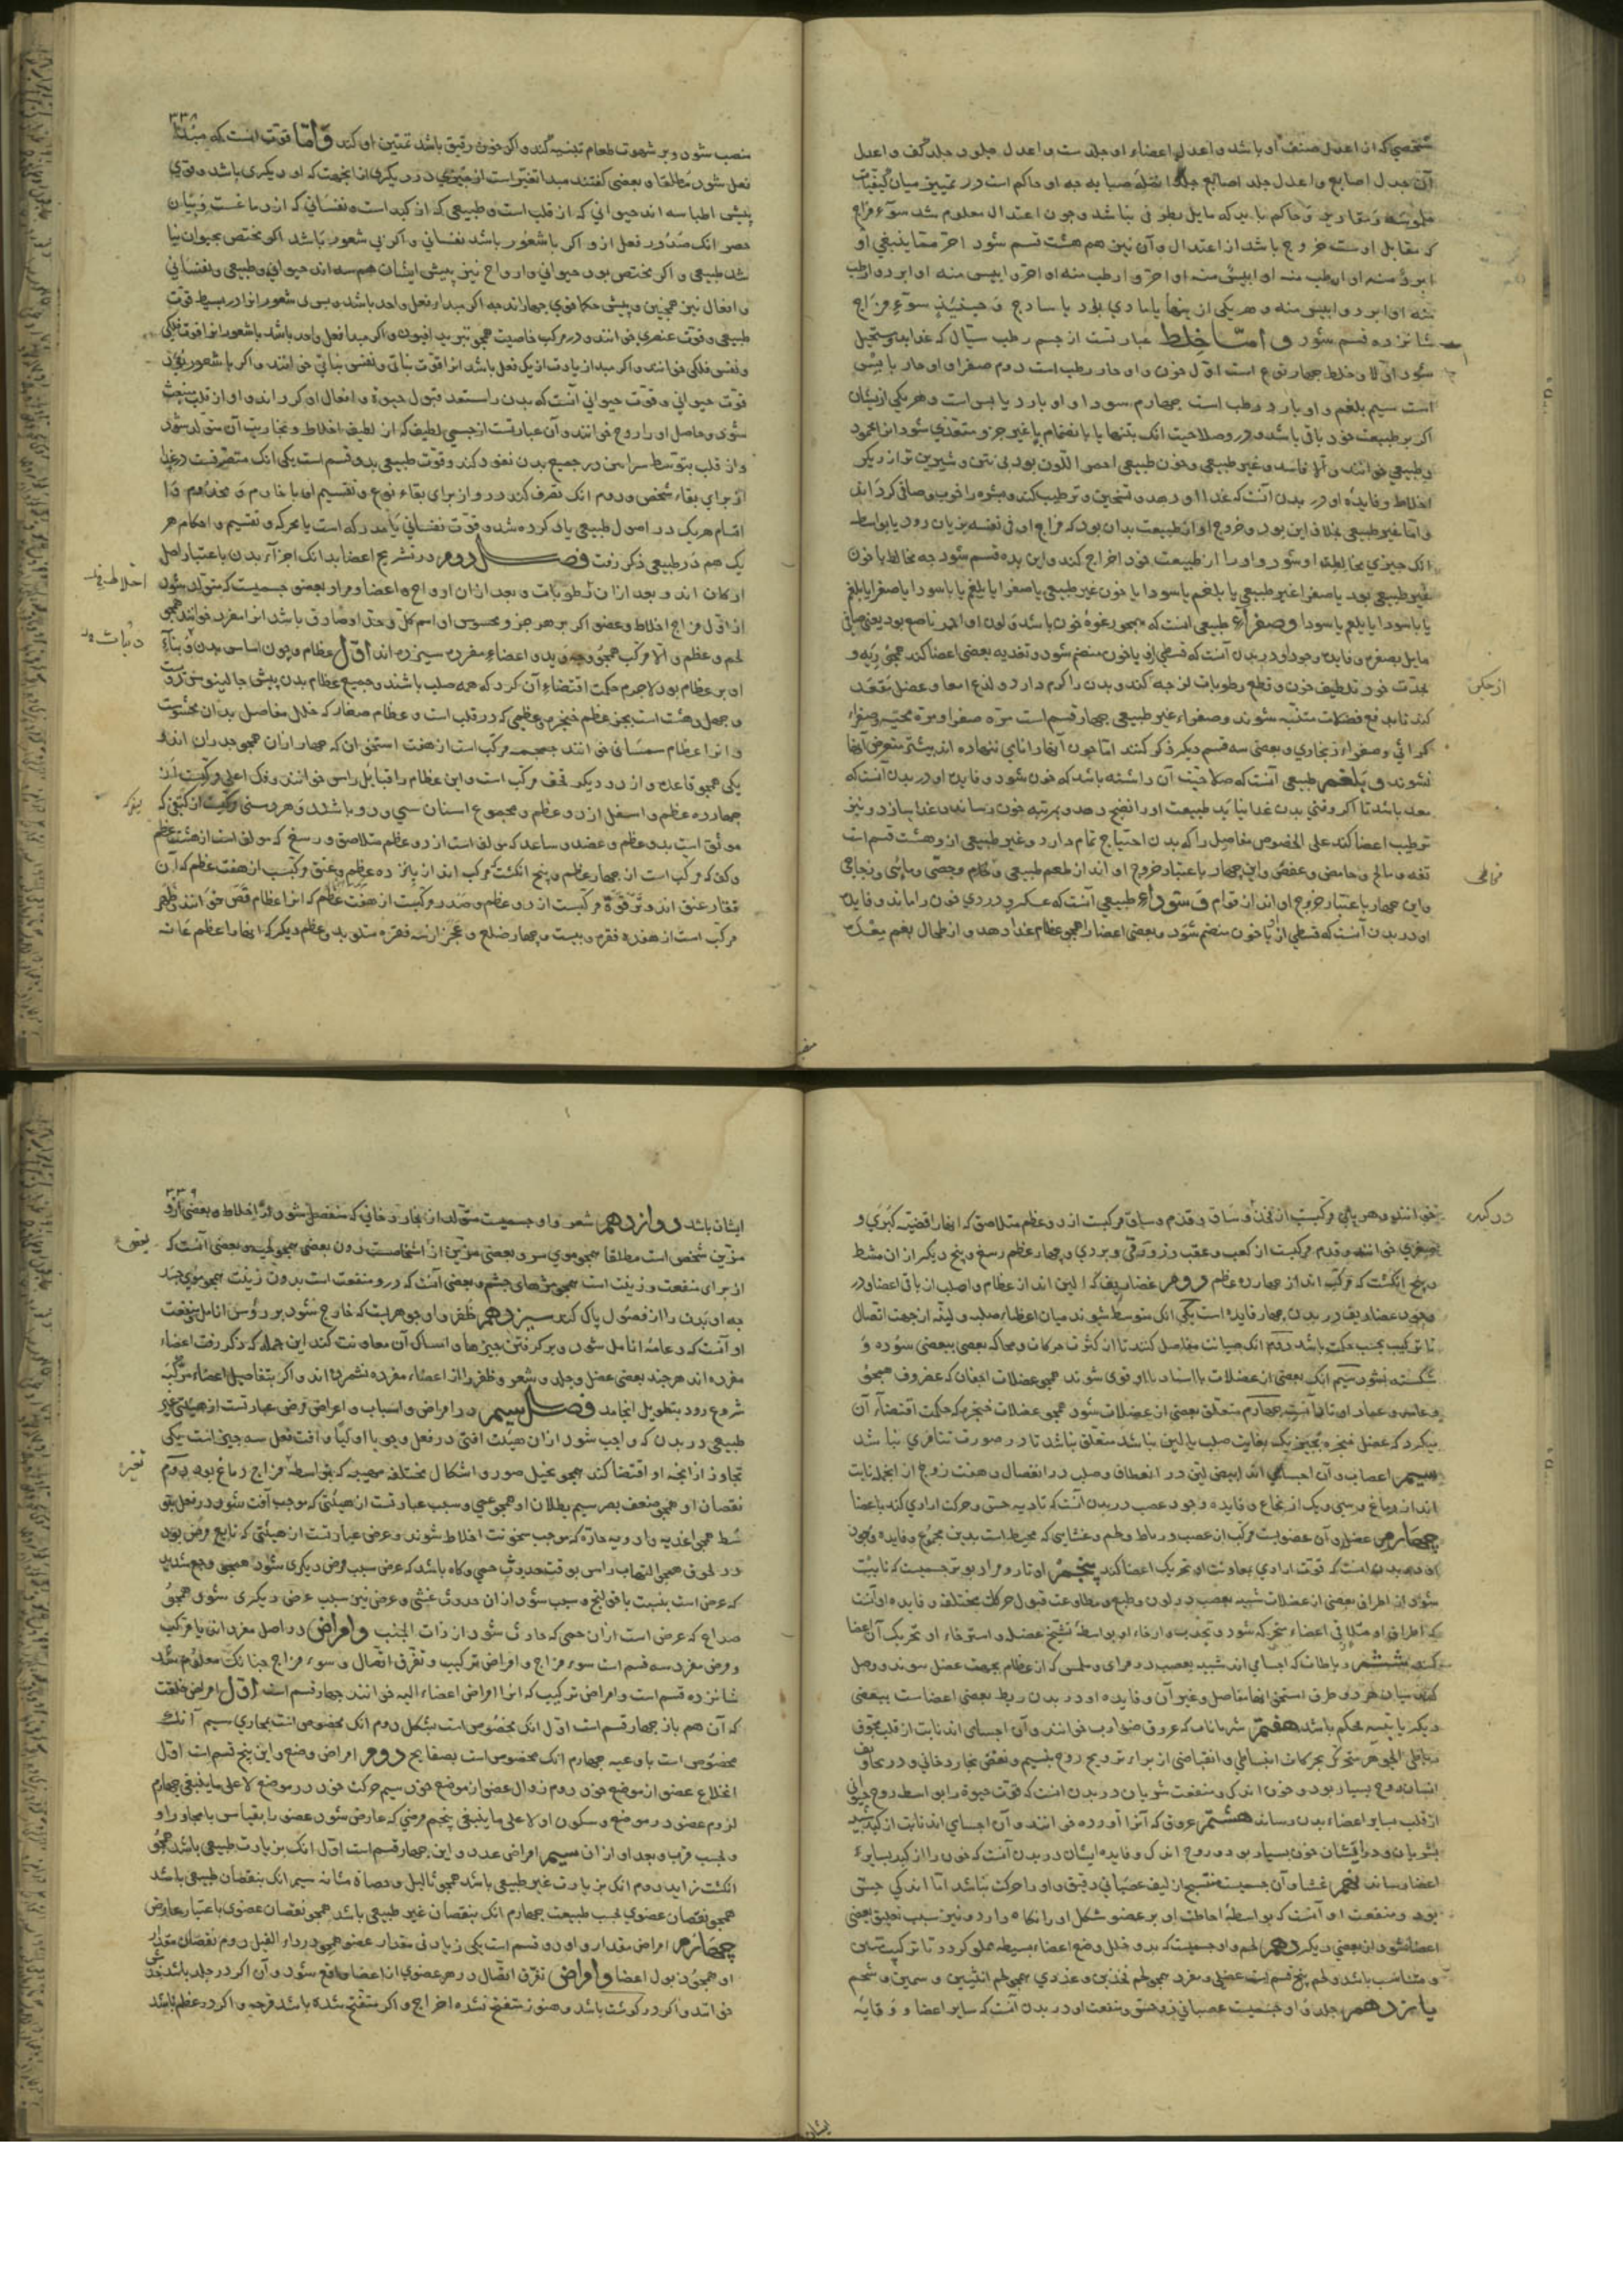 شخصی که از اعدل صنف او باشد و اعدل اعضاء او جلد ست و اعدل جلود جلد کف و اعدل
آن جلد اصابع و اعدل جلد اصابع جلد انملهٔ سبابه جه او حاکم است در تمییز میان کیفیات
ملموسه و مقادیر و حاکم باید که مایل بطرفی نباشد و جون اعتدال معلوم شد سوء مزاج
که مقابل اوست خروج باشد از اعتدال و آن نیز هم هشت قسم شود احر مما ینبغی او
ابرد منه او ارطب منه او ایبس منه او احر و ارطب منه او احر و ایبس منه او ابرد و ارطب
منه او ابرد و ایبس منه و هر یکی از ینها یا مادی بود یا ساذج و حینئذ سوء مزاج
شانزده قسم شود و امّا خلط عبارتست از جسم رطب سیال که غذا بدو مستحیل
شود اولا و خلط جهار نوع است اول خون و او حار رطب است دوم صفرا و او حار یابس
است سیم بلغم و او بارد رطب است جهارم سودا و او بارد یابس است و هر یکی ازیشان
اکر بر طبیعت خود باقی باشد و در و صلاحیت انک بتنها یا بانضمام با غیر جزو مغتذی شود انرا محمود
و طبیعی خوانند و الا فاسد و غیر طبیعی و خون طبیعی احمر اللون بود بی نتن و شیرین تر از دیکر
اخلاط و فایدهٔ او در بدن آنست که غذا او دهد و تسخین و ترطیب کند و بشره را خوب و صافی کرداند
و اما غیر طبیعی بخلاف این بود و خروج او از طبیعت بدان بود که مزاج او فی نفسه بزیان رود یا بواسطه
انک جیزی مخالطه او شود و او را از طبیعت خود اخراج کند و این بده قسم شود جه مخالط یا خون
غیر طبیعی بود یا صفرا غیر طبیعی یا بلغم یا سودا یا خون غیر طبیعی با صفرا یا بلغم یا با سودا یا صفرا با بلغم
یا با سودا یا بلغم با سودا و صفراء طبیعی انست که همجو رغوهٔ خون باشد و لون او احمر ناصع بود یعنی صافی
مایل بصفرت و فایدهٔ وجود او در بدن آنست که قسطی ازو با خون منضم شود و تغذیه بعضی اعضا کند همجو ریه و
بحدت خود تلطیف خون و قطع رطوبات لزجه کند و بدن را کرم دارد و لذع امعا و عضل مقعد
کند تا بدفع فضلات متنبه شوند و صفراء غیر طبیعی جهار قسم است مره صفرا و مره محیه و صفراء
کراثی و صفراء زنجاری و بعضی سه قسم دیکر ذکر کنند اما جون آنها را نامی ننهاده اند بیشتر متعرض آنها
نشوند و بلغم طبیعی آنست که صلاحیت آن داشته باشد که خون شود و فایدهٔ او در بدن آنست که
معد باشد تا اکر وقتی بدن غذا نیابد طبیعت او را نضج دهد و بمرتبه خون رساند و غذا سازد و نیز
ترطیب اعضا کند علی الخصوص مفاصل را که بدن احتیاج تمام دارد و غیر طبیعی ازو هشت قسم است
تفه و مالح و حامض و عفص و این جهار باعتبار خروج او اند از طعم طبیعی و خام و جصی و مائی و زجاجی
و این جهار باعتبار خروج او اند از قوام و سوداء طبیعی آنست که عکر و دردی خون را ماند و فایده
او در بدن آنست که قسطی ازو با خون منضم شود و بعضی اعضا را همجو عظام غذا دهد و از طحال بفم معده
از جکن
مخاطی
۳۳۸
منصب شود و بر شهوت طعام تنبیه کند و اکر خون رقیق باشد تمتین او کند و امّا قوت انست که مبدأ
فعل شود مطلقا و بعضی کفتند مبدا تغیر است از جیزی در دیکری از انجهت که او دیکری باشد و قوی
پیش اطبا سه اند حیوانی که از قلب است و طبیعی که از کبد است و نفسانی که از دماغست و بیان
حصر انک صدور فعل ازو اکر با شعور باشد نفسانی و اکر بی شعور باشد اکر مختص بحیوان نبا
شد طبیعی و اکر مختص بود حیوانی و ارواح نیز پیش ایشان هم سه اند حیوانی و طبیعی و نفسانی
و افعال نیز همجنین و پیش حکما قوی جهار اند جه اکر مبدا فعل واحد باشد و بی شعور انرا در بسیط قوت
طبیعی و قوت عنصری خوانند و در مرکب خاصیت همجو تبرید افیون و اکر مبدا فعل واحد باشد با شعور انرا قوت فلکی
و نفس فلکی خوانند و اکر مبدا زیادت از یک فعل باشد انرا قوت نباتی و نفس نباتی خوانند و اکر با شعور بود
قوت حیوانی و قوت حیوانی آنست که بدن را مستعد قبول حیوة و افعال او کرداند و او از قلب منبعث
شود و حامل او را روح خوانند و آن عبارتست از جسمی لطیف که از لطیف اخلاط و بخاریت آن متولد شود
و از قلب بتوسط شرایین در جمیع بدن نفوذ کند و قوت طبیعی بدو قسم است یکی انک متصرفست در غذا
از برای بقاء شخص و دوم انک تصرف کند درو از برای بقاء نوع و تقسیم او با خادم و مخدوم و
اقسام هر یک در اصول طبیعی یاد کرده شد و قوت نفسانی یا مدرکه است یا محرکه و تقسیم و احکام هر
یک هم در طبیعی ذکر رفت فصل دوم در تشریح اعضا بدانک اجزآء بدن باعتبار اصل
ارکان اند و بعد ازان رطوبات و بعد ازان ارواح و اعضا و مراد بعضو جسمیست که متولد شود
از اول مزاج اخلاط و عضو اکر بر هر جزو محسوس او اسم کل و حد او صادق باشد انرا مفرد خوانند همجو
لحم و عظم و الا مرکب همجو وجه و ید و اعضاء مفرده سیزده اند اول عظام و جون اساس بدن و بناء
او بر عظام بود لاجرم حکمت اقتضاء آن کرد که همه صلب باشند و جمیع عظام بدن پیش جالینوس دویست
و جهل و هشت است بجز عظم حنجره و عظمی که در قلب است و عظام صغار که خلل مفاصل بدان محشوست
و انرا عظام سمسمانی خوانند جمجمه مرکب است از هفت استخوان که جهار ازان همجو جدران اند
یکی همجو قاعده و از دو دیکر قحف مرکب است و این عظام را قبایل راس خوانند و فک اعلی مرکبست از
جهارده عظم و اسفل از دو عظم و مجموع اسنان سی و دو باشد و هر دستی مرکبست از کتفی که
موثق است بدو عظم و عضد و ساعد که مولف است از دو عظم متلاصق و رسغ که مولف است از هشت عظم
و کف که مرکب است از جهار عظم و پنج انکشت مرکب اند از پانزده عظم و عنق مرکبست از هفت عظم که آن
فقار عنق اند و ترقوة مرکبست از دو عظم و صدر مرکبست از هفت عظم که انرا عظام قص خوانند و ظهر
مرکب است از هفده فقره و بیست و جهار ضلع و عجز از سه فقره متلو بدو عظم دیکر که انها را عظم عانه
اخلاط
۳۳۹
خوانند و هر پائی مرکبست از فخذ و ساق و قدم و ساق مرکبست از دو عظم متلاصق که انها را قصبه کبری و
صغری خوانند و قدم مرکبست از کعب و عقب و زورقی و نردی و جهار عظم رسغ و پنج دیکر ازان مشط
و پنج انکشت که مرکب اند از جهارده عظم دوم غضاریف که الین اند از عظام و اصلب از باقی اعضا و در
وجود غضاریف در بدن جهار فایده است یکی انک متوسط شوند میان اعضاء صلبه و لینه از جهت اتصال
تا ترکیب بحسب حکمت باشد دوم انک صیانت مفاصل کنند تا از کثرت حرکات و محاکه بعضی ببعضی سوده و
شکسته نشود سیم انک بعضی از عضلات باستناد بااو قوی شوند همجو عضلات اجفان که غضروف همجو
دعامه و عماد اوتار آنست جهارم متعلق بعضی از عضلات شود همجو عضلات حنجره که حکمت اقتضاء آن
میکرد که عضل حنجره بجیزی که بغایت صلب یا لین نباشد متعلق باشد تا در صورت تنافری نباشد
سیم اعصاب و آن اجسامی اند ابیض لین در انعطاف و صلب در انفصال و هفت زوج از انجمله نابت
اند از دماغ و سی و یک از نخاع و فایده وجود عصب در بدن آنست که تادیه حس و حرکت ارادی کند باعضا
جهارم عضل و آن عضویست مرکب از عصب و رباط و لحم و غشایی که محیط است بدین مجموع و فایده وجود
او در بدن انست که قوت ارادی بمعاونت او تحریک اعضا کند پنجم اوتار و مراد بوتر جسمیست که نابت
شود از اطراف بعضی از عضلات شبیه بعصب در لون و طبع و مطاوعت قبول حرکات مختلفه و فایده او آنست
که اطراف او ملاقی اعضاء متحرکه شود و بجذب و ارخاء او بواسطهٔ تشنج عضله و استرخاء او تحریک آن اعضا
کند ششم رباطات که اجسامی اند شبیه بعصب در مرای و ملمس که از عظام بجهت عضل شوند و وصل
کنند میان هر دو طرف استخوانها مفاصل و غیر آن و فایده او در بدن ربط بعضی اعضاست ببعضی
دیکر تا بنیه محکم باشد هفتم شریانات که عروق ضوارب خوانند و آن اجسامی اند نابت از قلب مجوف
رباطی الجوهر متحرک بحرکات انبساطی و انقباضی از برای ترویح روح بنسیم و نفض بخار دخانی و در تجاویف
ایشان روح بسیار بود و خون اندک و منفعت شریان در بدن انست که قوت حیوة را بواسطه روح حیوانی
از قلب بسایر اعضاء بدن رساند هشتم عروق که آنرا آورده خوانند و آن اجسامی اند نابت از کبد شبیه
بشریان و در ایشان خون بسیار بود و روح اندک و فایده ایشان در بدن آنست که خون را از کبد بسایر
اعضا رساند نهم غشا و آن جسمیست منتسج از لیف عصبانی دقیق و او را حرکت نباشد اما اندکی حس
بود و منفعت او آنست که بواسطهٔ احاطت او بر عضو شکل او را نکاه دارد و نیز سبب تعلیق بعضی
اعضا شود از بعضی دیکر دهم لحم و او جسمیست که بدو خلل وضع اعضاء بسیطه مملو کردد تا ترکیب متین
و متناسب باشد و لحم پنج قسم است عضلی و مفرد همجو لحم فخذین و غددی همجو لحم انثیین و سمین و شحم
یازدهم جلد و او جسمیست عصبانی ذو حس و منفعت او در بدن آنست که سایر اعضا و وقایه
ایشان باشد دوازدهم شعر و او جسمیست متولد از بخار دخانی که منفصل شود از اخلاط و بعضی ازو
مزین شخص است مطلقا همجو موی سر و بعضی مزین از اشخاصست دون بعضی همجو لحیه و بعضی آنست که
از برای منفعت و زینت است همجو مژهای جشم و بعضی آنست که درو منفعت است بدون زینت همجو موی جسد
جه او بدن را از فضول پاک کند سیزدهم ظفر و او جوهریست که خارج شود بر رؤس انامل و منفعت
او آنست که دعامهٔ انامل شود و بر کرفتن جیزها و امساک آن معاونت کند این جمله که ذکر رفت اعضاء
مفرده اند هر جند بعضی عضل و جلد و شعر و ظفر را از اعضاء مفرده نشمرده اند و اکر بتفاصیل اعضاء مرکبه
شروع رود بتطویل انجامد فصل سیم در امراض و اسباب و اعراض مرض عبارتست از هیئتی غیر
طبیعی در بدن که واجب شود ازان هیئت آفتی در فعل وجوبا اولیا و آفت فعل سه جیز است یکی
تجاوز از انجه او اقتضا کند همجو تخیل صور و اشکال مختلفه مهیبه که بواسطه مزاج دماغ بود دوم
نقصان او همجو ضعف بصر سیم بطلان او همجو عمی و سبب عبارتست از هیئتی که موجب آفت شود در فعل بتو
سط همجو اغذیه و ادویه حاره که موجب سخونت اخلاط شوند و عرض عبارتست از هیئتی که تابع مرض بود
در لحوق همجو التهاب راس بوقت حدوث حمی و کاه باشد که عرض سبب مرض دیکری شود همجو وجع شدید
که عرض است بنسبت با قولنج و سبب شود ازان حدوث غشی و عرض نیز سبب عرض دیکری شود همجو
صداع که عرضی است ازان حمی که حادث شود از ذات الجنب و امراض در اصل مفرد اند یا مرکب
و مرض مفرد سه قسم است سوء مزاج و امراض ترکیب و تفرق اتصال و سوء مزاج جنانک معلوم شد
شانزده قسم است و امراض ترکیب که انرا امراض اعضاء الیه خوانند جهار قسم است اول امراض خلقت
که آن هم باز جهار قسم است اول انک مخصوص است بشکل دوم انک مخصوص است بمجاری سیم آنک
مخصوص است باوعیه جهارم انک مخصوص است بصفایح دوم امراض وضع و این پنج قسم است اول
انخلاع عضو از موضع خود دوم زوال عضو از موضع خود سیم حرکت خود در موضع لا علی ما ینبغی جهارم
لزوم عضو در موضع و سکون او لا علی ما ینبغی پنجم مرضی که عارض شود عضو را بقیاس با مجاور او
و بحسب قرب و بعد او ازان سیم امراض عدد و این جهار قسم است اول انک بزیادت طبیعی باشد همجو
انکشت زاید دوم انک بزیادت غیر طبیعی باشد همجو ثالیل و حصاة مثانه سیم انک بنقصان طبیعی باشد
همجو نقصان عضوی بحسب طبیعت جهارم انک بنقصان غیر طبیعی باشد همجو نقصان عضوی باعتبار عارض
جهارم امراض مقدار و او دو قسم است یکی زیادتی مقدار عضو همجو داء الفیل دوم نقصان مقدار
او همجو ذبول اعضا و امراض تفرق اتصال در هر عضوی از اعضا واقع شود و آن اکر در جلد باشد خدش
خوانند و اکر در کوشت باشد و هنوز متقیح نشده جراح و اکر متقیح شده باشد قرحه و اکر در عظم باشد